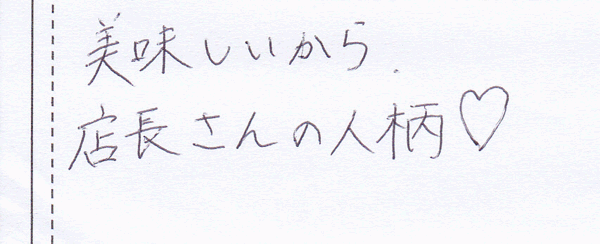 美味しいから.
店長さんの人柄♡